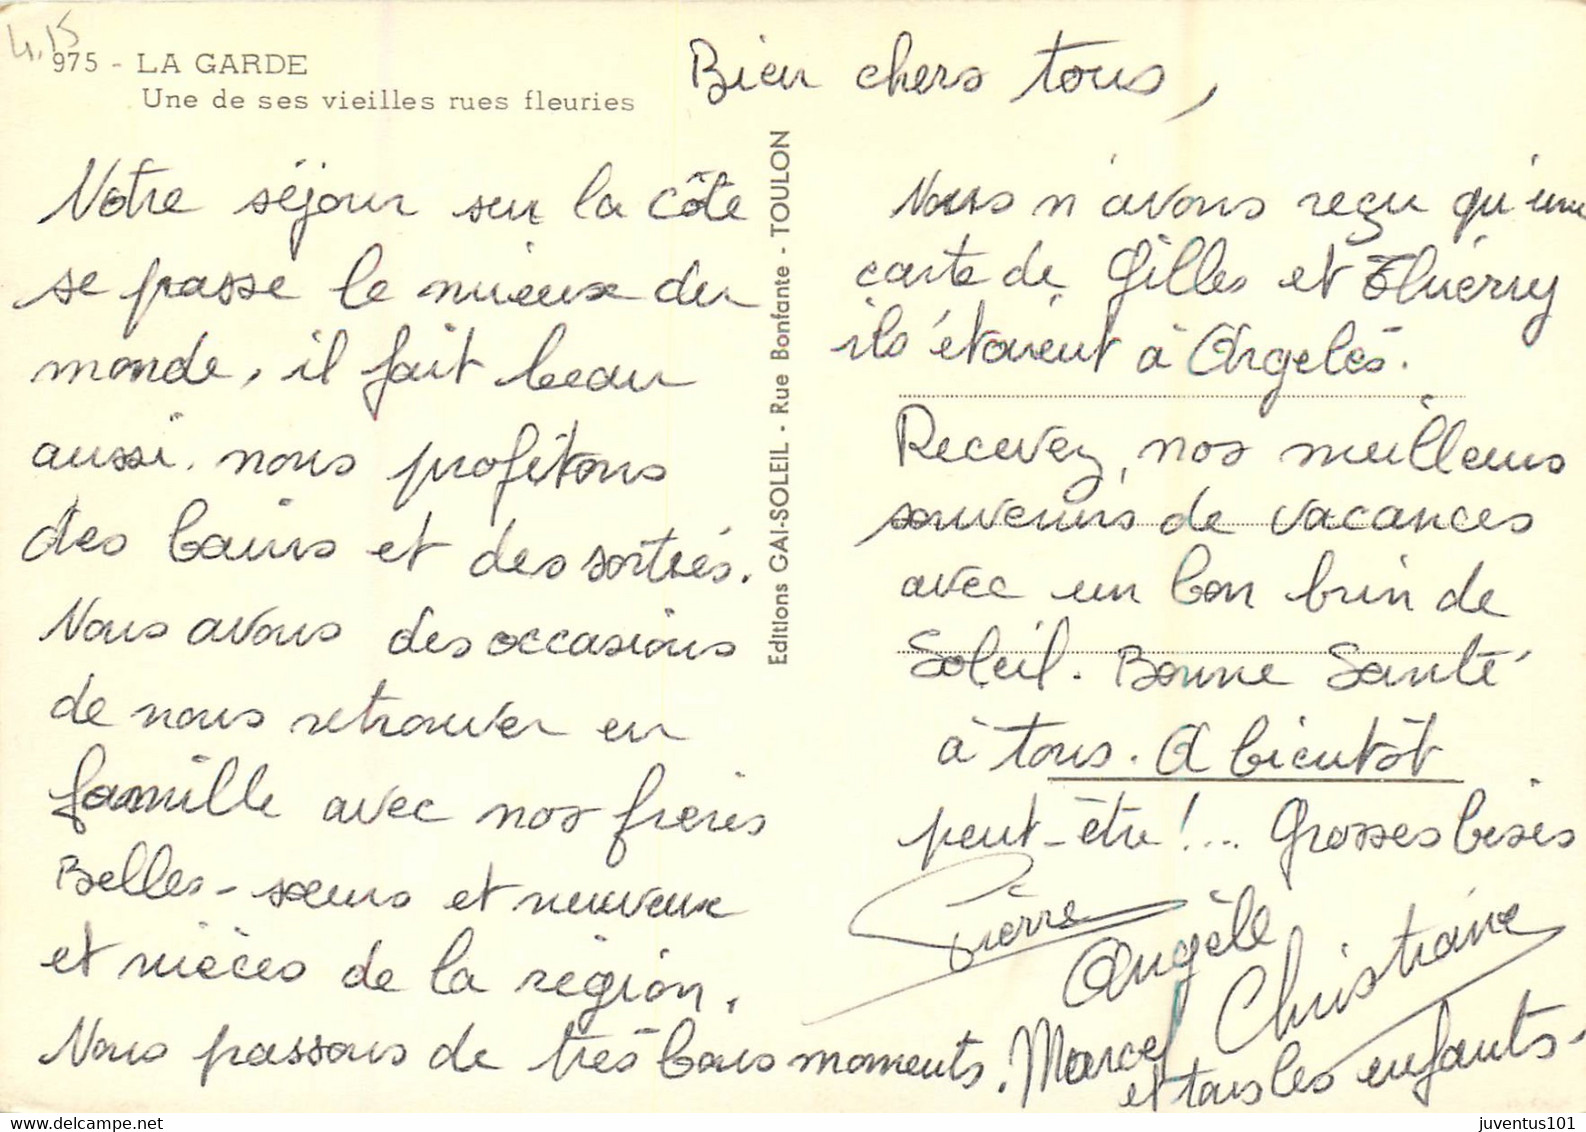 4.15
975 - LA GARDE
Une de ses vieilles rues fleuries
Bien chers tous,
Notre séjour sur la côte
se passe le mieux du
monde, il fait beau
aussi. nous profitons
des bains et des sortiés.
Nous avons des occasions
de nous retrouver en
famille avec nos frères
Belles-sœurs et neuveux
et nièces de la région.
Nous passons de très bons moments.
Editions GAI-SOLEIL - Rue Bonfante - TOULON
Nous n'avons reçu qu'une
carte de Gilles et Thierry
ils étaient à Argelès.
Recevez, nos meilleurs
souvenirs de vacances
avec un bon brin de
Soleil. Bonne Santé
à tous. A bientôt
peut-être !... Grosses bises
Pierre
Angèle
Christiane
Marcel
et tous les enfants.
juventus101